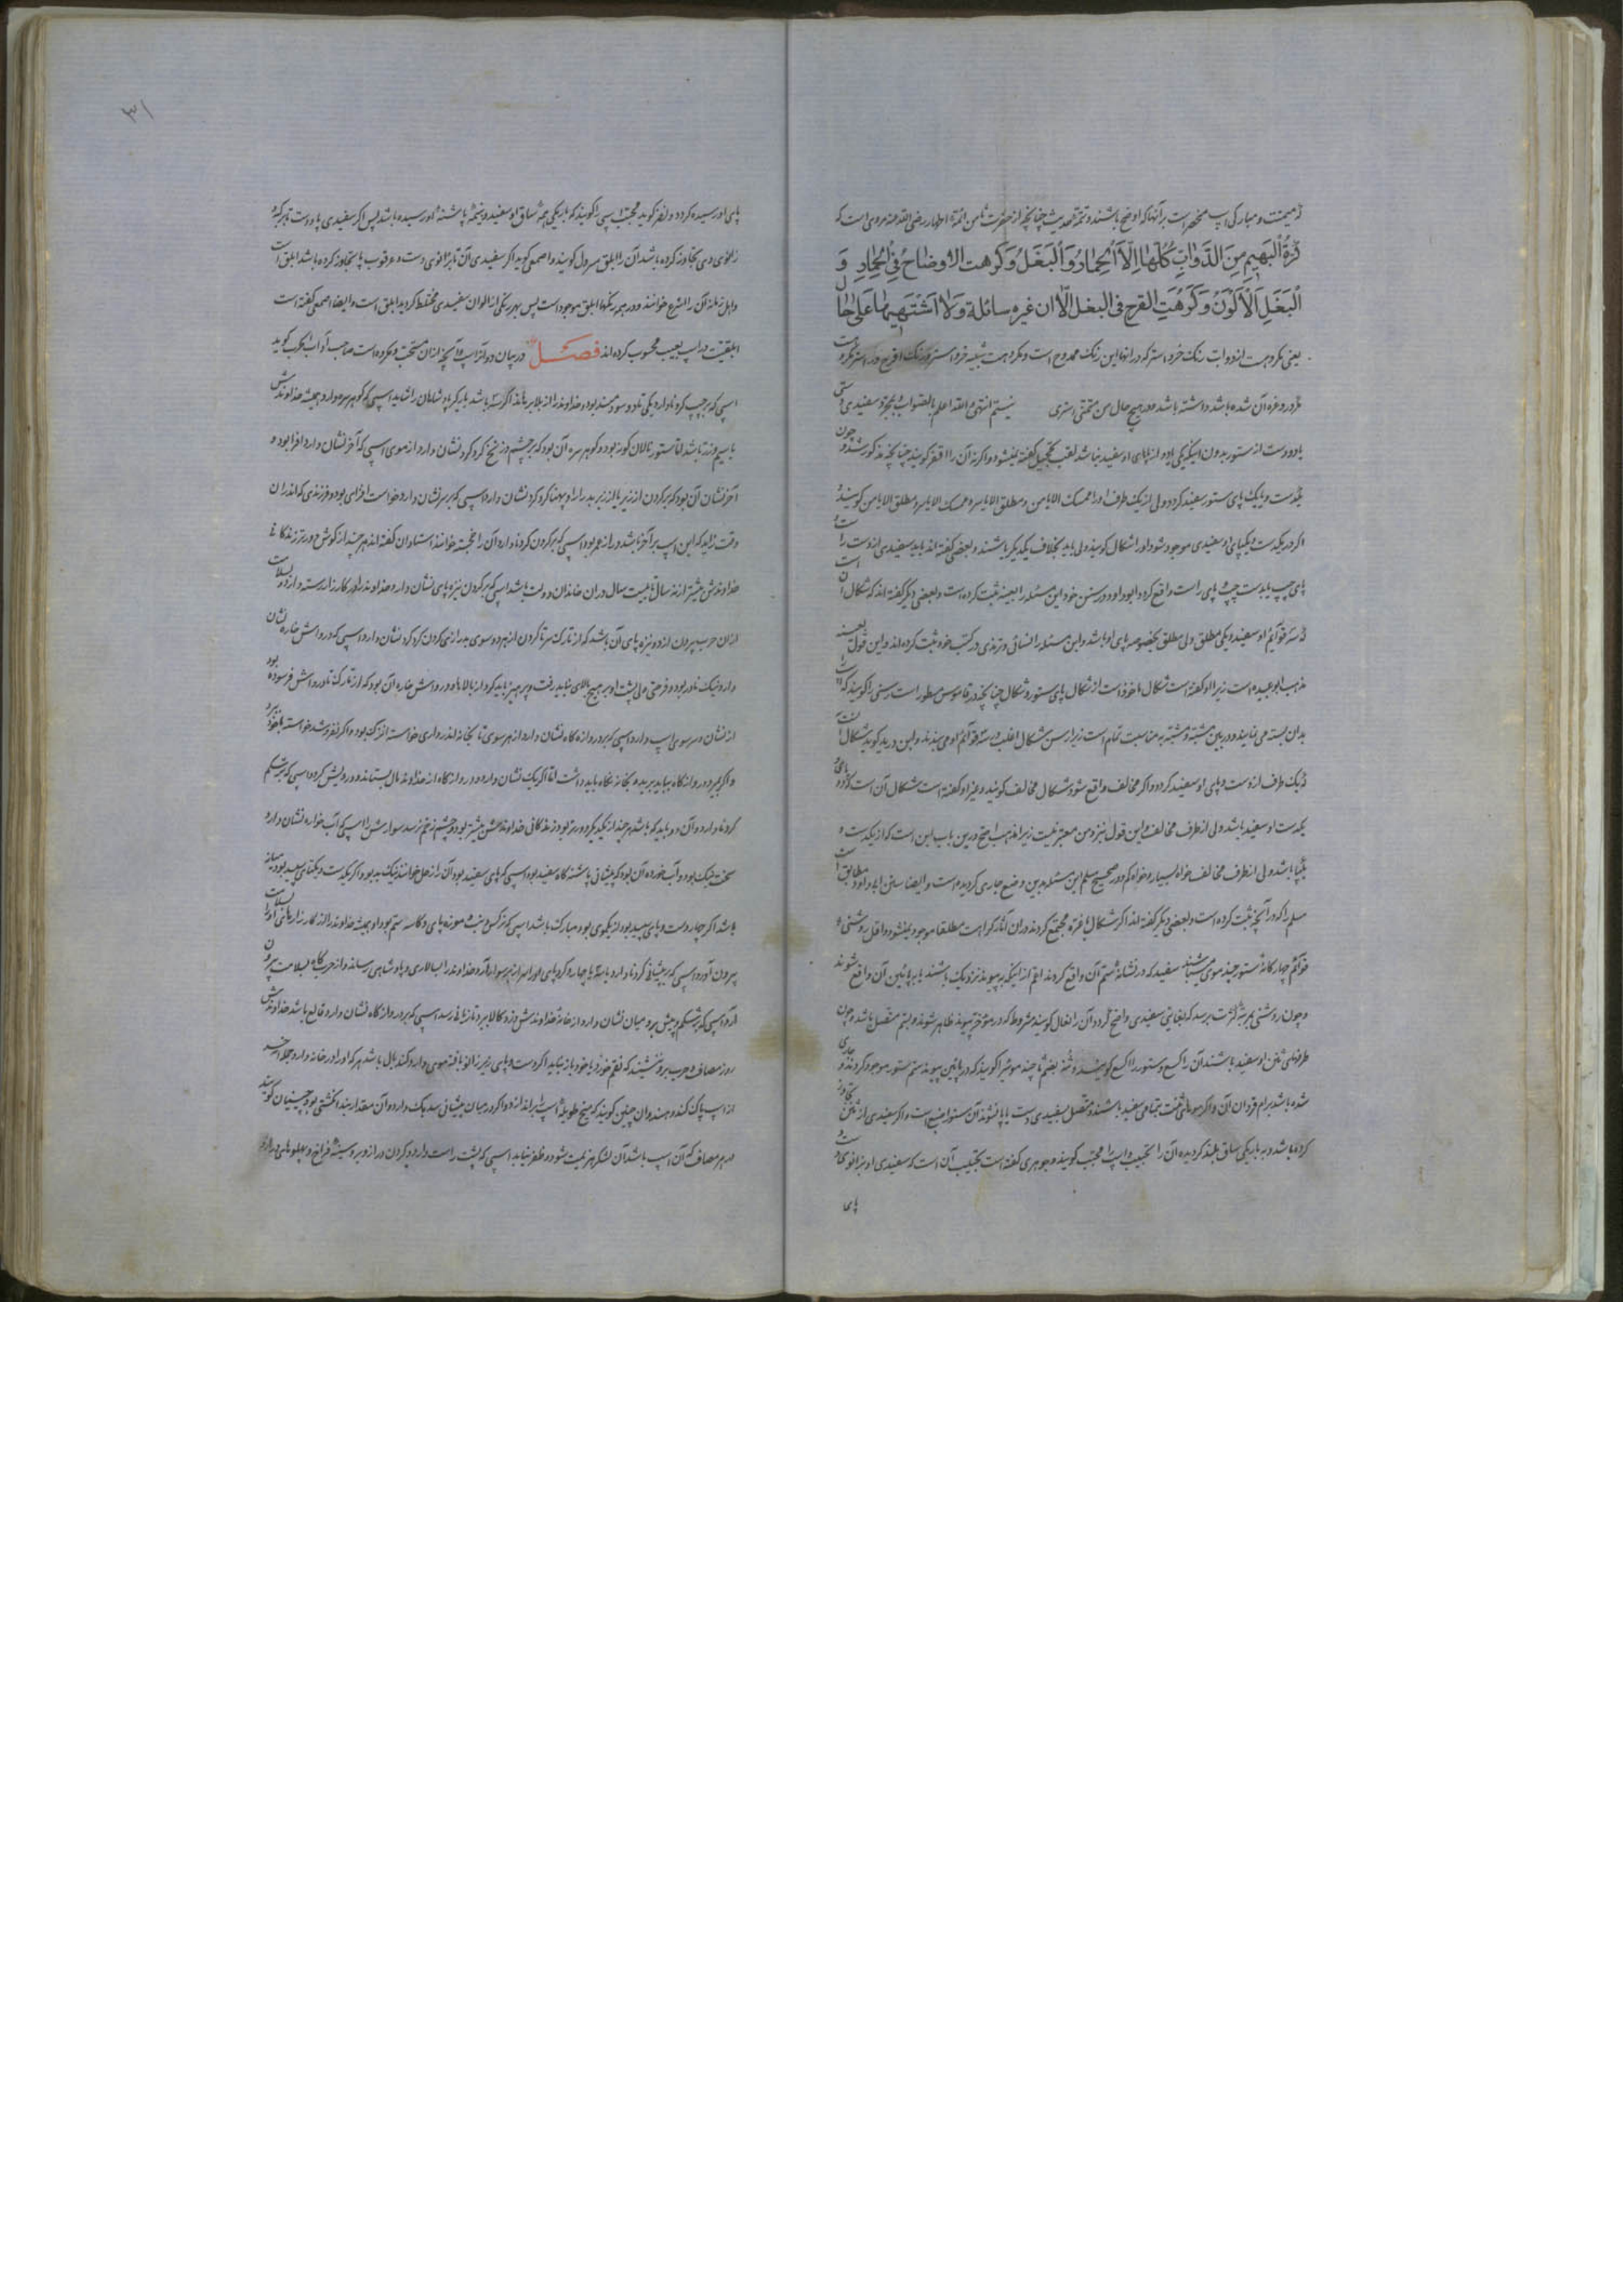 که میمنت و مبارکی اسپ منحصر است بر آنها که اوضح باشند و تتمه حدیث چنانچه از حضرت ثامن ائمه اطهار رضی الله عنه مروی است که
كُرِهَ الْبَهِيمِ مِنَ الدَّوَابِّ كُلِّهَا إِلَّا الْحِمَارُ وَالْبَغَلُ وَكَرِهت الأوضاحُ فِي الْحِمَارِ وَ
الْبَغَلِ الْأَلْوَنُ وَكَرِهَتِ القرح فی البغل الّا ان غیره سائلة وَلَا اشْتَهِيهَا عَلَى حَال
یعنی مکروهست از دواب رنگ خر و استر که در انها این رنگ ممدوح است و مکروهست شبیه خر و استر و رنگ اقرح در استر مکروه
غرور و غره آن شده باشد داشته باشد و در هیچ حال من متمنی استری نیستم انتهی والله اعلم بالصواب بمجرد سفیدی دستی
یا دو دست از ستور بدون اینکه یکی یا دو از پای او سفید نباشد لقب تحجیل گفته نمیشود و اگر نه آن را اقفز گویند چنانچه مذکور شد و چون
یکدست و یا یک پای ستور سفید گردد ولی از یک طرف او را ممسک الایامن و مطلق الایاسر و ممسک الایاسر و مطلق الایامن گویند و
اگر در یکدست و یکپای او سفیدی موجود شود او را شکال گویند ولی باید بخلاف یکدیگر باشند و بعضی گفته اند باید سفیدی از دست راست و
پای چپ یا بدست چپ و پای راست واقع گردد و ابو داود در سنن خود این مسئله را بعینه ثبت کرده است و بعضی دیگر گفته اند که شکال آن است
که سه قوائم او سفید و یکی مطلق ولی مطلق بخصوصه پای او باشد و این مسئله را نسائی و ترمذی در کتب خود ثبت کرده اند و این قول بعینه
مذهب ابو عبیده است زیرا او گفته است شکال ماخوذ است از شکال پای ستور و شکال چنانچه در قاموس مسطور است رسنی را گویند که
بدان بسته می نمایند و در بین مشبه و مشبه به مناسبت تمام است زیرا رسن شکال اغلب به سه قوائم او می بندند و ابن درید گوید شکال آنست
که یک طرف از دست و پای او سفید گردد و اگر مخالف واقع شود شکال مخالف گویند و غیر او گفته است شکال آن است که دو پای و
یکدست او سفید باشد ولی از طرف مخالف و این قول نیز و من معتبر نیست زیرا مذهب اصح درین باب این است که از یکدست و
یکپا باشد ولی از طرف مخالف خواه بسیار و خواه کم و در صحیح مسلم این مسئله بدین وضع جاری گردیده است و ایضا سنن ابو داود مطابق است
مسلم را که در آنچه ثبت کرده است و بعضی دیگر گفته اند اگر شکال با غره مجتمع گردند در آن آثار کراهت مطلقا موجود نمیشود و اقل روشنی و
قوائم چهار گانه ستور چند موی میباشند سفید که در نشانه ستم آن واقع گردند اعم از اینکه به پیوند نزدیک باشند یا به پائین آن واقع شوند
و چون روشنی بمرتبه کثرت برسد که بغایتی سفیدی واضح گردد آن را انعال گویند مشروط که در مؤخر پیوند ظاهر شوند و بستم متصل باشد و چون
طرفهای ثنن او سفید باشند آن را کسع و ستور را اکسع گویند و ثنه بضم ثا چند مو شیرا گویند که در پائین پیوند ستم ستور موجود گردند و جاری
شده باشد برام قردان آن و اگر موهای ثنن بتمامی سفید باشند و متصل بسفیدی دست یا پا نشوند آن ستور اصبغ است و اگر سفیدی از ثنن تجاوز
کرده باشد و به باریکی ساق بلند گردیده آن را تجبیب و اسپ را مجبب گویند و جوهری گفته است تجبیب آن است که سفیدی او بزانوی دست و
پای
۳۱
پای او رسیده گردد و نضر گوید مجبب اسپی را گویند که باریکی همه ساق او سفید و بضمه پاشنه او رسیده باشد پس اگر سفیدی پا و دست تا هر که و
زانوی وی تجاوز کرده باشد آن را ابلق مسرول گویند و اصمعی گوید اگر سفیدی آن تا بزانوی دست و عرقوب پا تجاوز کرده باشد ابلق است
و اهل زمانه آن را اشرع خوانند و در همه رنگها ابلق موجود است پس بهر رنگی از الوان سفیدی مختلط گردید ابلق است و ایضا اصمعی گفته است
ابلقیت در اسپ بعیب محسوب کرده اند فصل در بیان دوائر اسپ و آنچه از ان مستحب و مکروه است صاحب آداب الحرب گوید
اسپی که بر چپ گردنا دارد نیکی تا و سودمند بود و خداوند را از بلا برهاند اگر سه باشد باید که پادشاهان را شاید اسپی که گوهر سره دارد همیشه خداوندش
با سیم و زر باشد اما ستور نالان گونه بود و گوهر سره آن بود که بر چشم و زنخ گرد گرد نشان دارد از موی اسپی که آخر نشان دارد افزا بود و
آخر نشان آن بود که بر گردن از زیر یا از زبر بدرازا و پهنا گرد گرد نشان دارد اسپی که بر سر نشان دارد خواست افزای بود و فرزندی که اندران
وقت زاید که این اسپ بر آخر باشد دراز عمر بود اسپی که بر گردن گردنا دارد آن را خجسته خوانند استادان گفته اند هر چند از گوش دورتر زندگانی
خداوندش بیشتر از نه سال تا بیست سال در ان خاندان دولت باشد اسپی که بر گردن نیزه پای نشان دارد خداوند را در کارزار رسته دارد و بسلامت
از ان حرب بیرون ارد و نیزه پای آن باشد که از تارک سر تا گردن از هر دو سوی بدرازی گردن گرد گرد نشان دارد اسپی که در رواش خاره نشان
دارد نیک نادر بود و فرخی ولی پشت او بر هیچ بالای نباید رفت و پرهیز باید کرد از بالاها و در رواش خاره آن بود که از تارک تا در رواش فرسوده بود
از نشان و سر سوی اسپ دارد اسپی که بر دروازه گاه نشان دارد از هر سوی تا بخانه اندر داری خواسته اندک بود و اگر نفروشد خواسته با خود برد
و اگر بمیرد دروازگاه بباید بریده بخانه نگاه باید داشت اما اگر یک نشان دارد و در دروازگاه از خداوند مال بستاند و درویش کرد و اسپی که بر شکم
گردنا دارد و آن دو باید که باشد هر چند از یکدیگر دورتر بود زندگانی خداوندش بیشتر بود و چشم زخم نرسد سوارش را اسپی که آب خواره نشان دارد
سخت نیک بود و آب خورده آن بود که پیشانی پاشنه گاه سفید بود اسپی که پای سفید بود آن را زحل خوانند نیک بد بود و اگر یکدست و یکپای سپید بود میانه
باشد اگر چار دست و پای سپید بود از نیکوی بود مبارک باشد اسپی که نرگس و بنه موزه پای و کاسه ستم بود او همیشه خداوند را از کارزار بامنی و بسلامت
بیرون آورد اسپی که بر پیشانی گردنا دارد یا سه یا چهار گرد پای او را بدار هر سوار ارد خداوند را بسالاری و پادشاهی رساند و از حربگاه بسلامت بیرون
آرد اسپی که بر شکم و پیش بر و میان نشان دارد از خانه خداوندش دزد کالا ببرد تا زیانی رسد اسپی که بر دروازگاه نشان دارد و قالع باشد خداوندش
روز مصاف و حرب بر و ننشیند که نقم خورد یا خود باز نیاید اگر دست و پای زبر زانو بافته موی دارد و گند بال باشد هر که او را در خانه دارد جمله آخر
از اسپ پاک کند و هندوان چنین گویند که میخ طویله اسپ را براندازد و اگر در میان پیشانی سدیک دارد و آن مقدار بند انگشتی بود چینیان گویند
در هر مصاف که آن اسپ باشد آن لشکر هزیمت شود و ظفر نیابد اسپی که پشت راست دارد و گردن دراز و بر و سینه فراخ و پهلوهای دراز